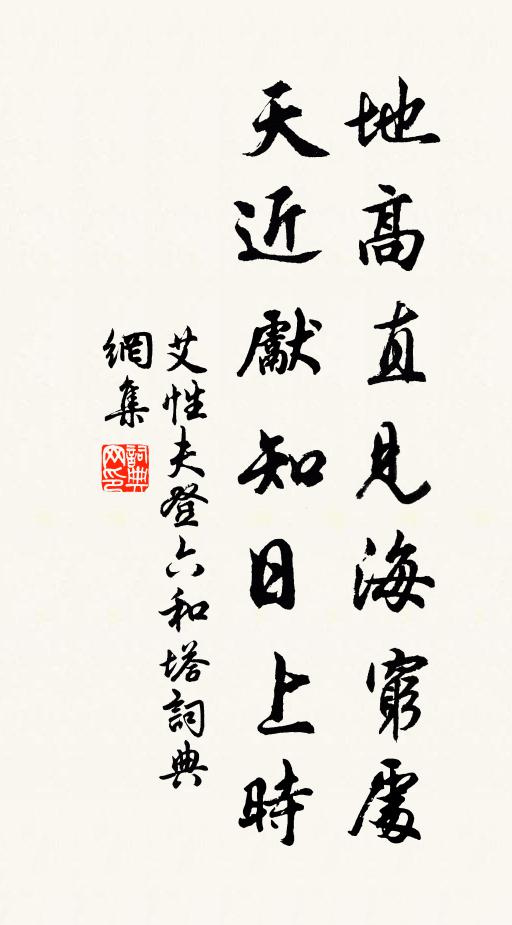 地高直見海窮處
天近獻知日上時
艾性夫登六和塔詞典
網集
詞典
网印